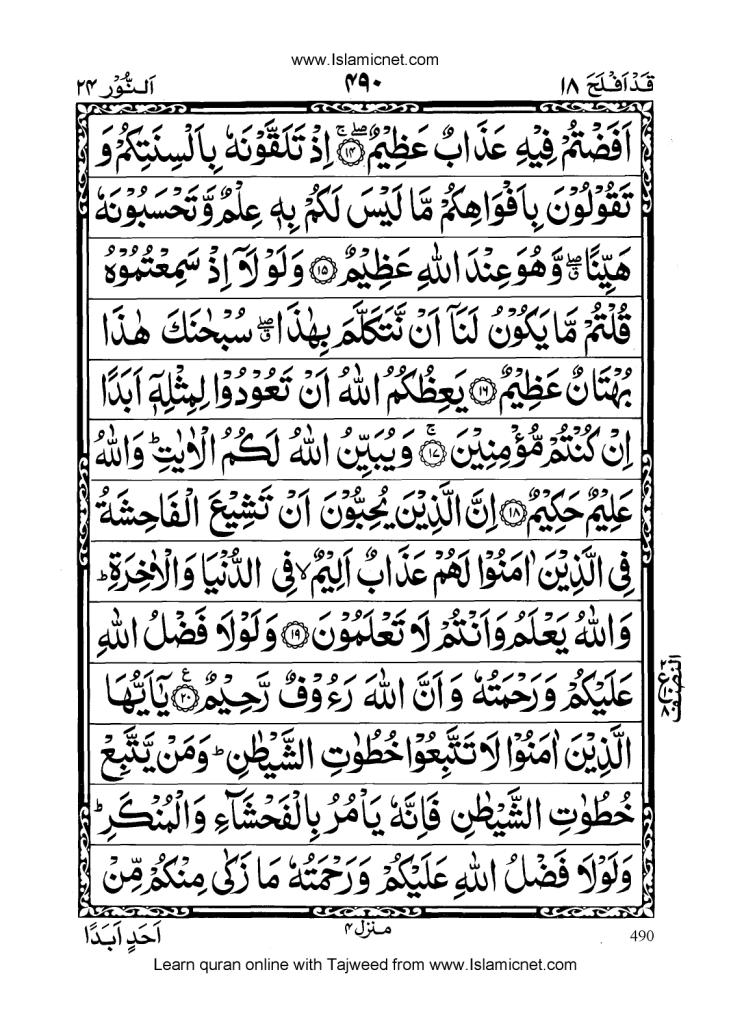 www.Islamicnet.com
قَدْ اَفْلَحَ ۱۸
۴۹۰
اَلنُّوْر ۲۴
اَفَضْتُمْ فِيْهِ عَذَابٌ عَظِيْمٌ ۚۖ ۱۴ اِذْ تَلَقَّوْنَهٗ بِاَلْسِنَتِكُمْ وَ
تَقُوْلُوْنَ بِاَفْوَاهِكُمْ مَّا لَيْسَ لَكُمْ بِهٖ عِلْمٌ وَّ تَحْسَبُوْنَهٗ
هَيِّنًا ۖۗ وَّ هُوَ عِنْدَ اللّٰهِ عَظِيْمٌ ۱۵ وَ لَوْ لَاۤ اِذْ سَمِعْتُمُوْهُ
قُلْتُمْ مَّا يَكُوْنُ لَنَاۤ اَنْ نَّتَكَلَّمَ بِهٰذَا ۖۗ سُبْحٰنَكَ هٰذَا
بُهْتَانٌ عَظِيْمٌ ۱۶ يَعِظُكُمُ اللّٰهُ اَنْ تَعُوْدُوْا لِمِثْلِهٖۤ اَبَدًا
اِنْ كُنْتُمْ مُّؤْمِنِيْنَ ۚ ۱۷ وَ يُبَيِّنُ اللّٰهُ لَكُمُ الْاٰيٰتِ ؕ وَ اللّٰهُ
عَلِيْمٌ حَكِيْمٌ ۱۸ اِنَّ الَّذِيْنَ يُحِبُّوْنَ اَنْ تَشِيْعَ الْفَاحِشَةُ
فِى الَّذِيْنَ اٰمَنُوْا لَهُمْ عَذَابٌ اَلِيْمٌ ۙ فِى الدُّنْيَا وَ الْاٰخِرَةِ ؕ
وَ اللّٰهُ يَعْلَمُ وَ اَنْتُمْ لَا تَعْلَمُوْنَ ۱۹ وَ لَوْ لَا فَضْلُ اللّٰهِ
عَلَيْكُمْ وَ رَحْمَتُهٗ وَ اَنَّ اللّٰهَ رَءُوْفٌ رَّحِيْمٌ ع ۲۰ يٰۤاَيُّهَا
الَّذِيْنَ اٰمَنُوْا لَا تَتَّبِعُوْا خُطُوٰتِ الشَّيْطٰنِ ؕ وَ مَنْ يَّتَّبِعْ
خُطُوٰتِ الشَّيْطٰنِ فَاِنَّهٗ يَاْمُرُ بِالْفَحْشَآءِ وَ الْمُنْكَرِ ؕ
وَ لَوْ لَا فَضْلُ اللّٰهِ عَلَيْكُمْ وَ رَحْمَتُهٗ مَا زَكٰى مِنْكُمْ مِّنْ
النصف
منزل ۴
اَحَدٍ اَبَدًا
490
Learn quran online with Tajweed from www.Islamicnet.com